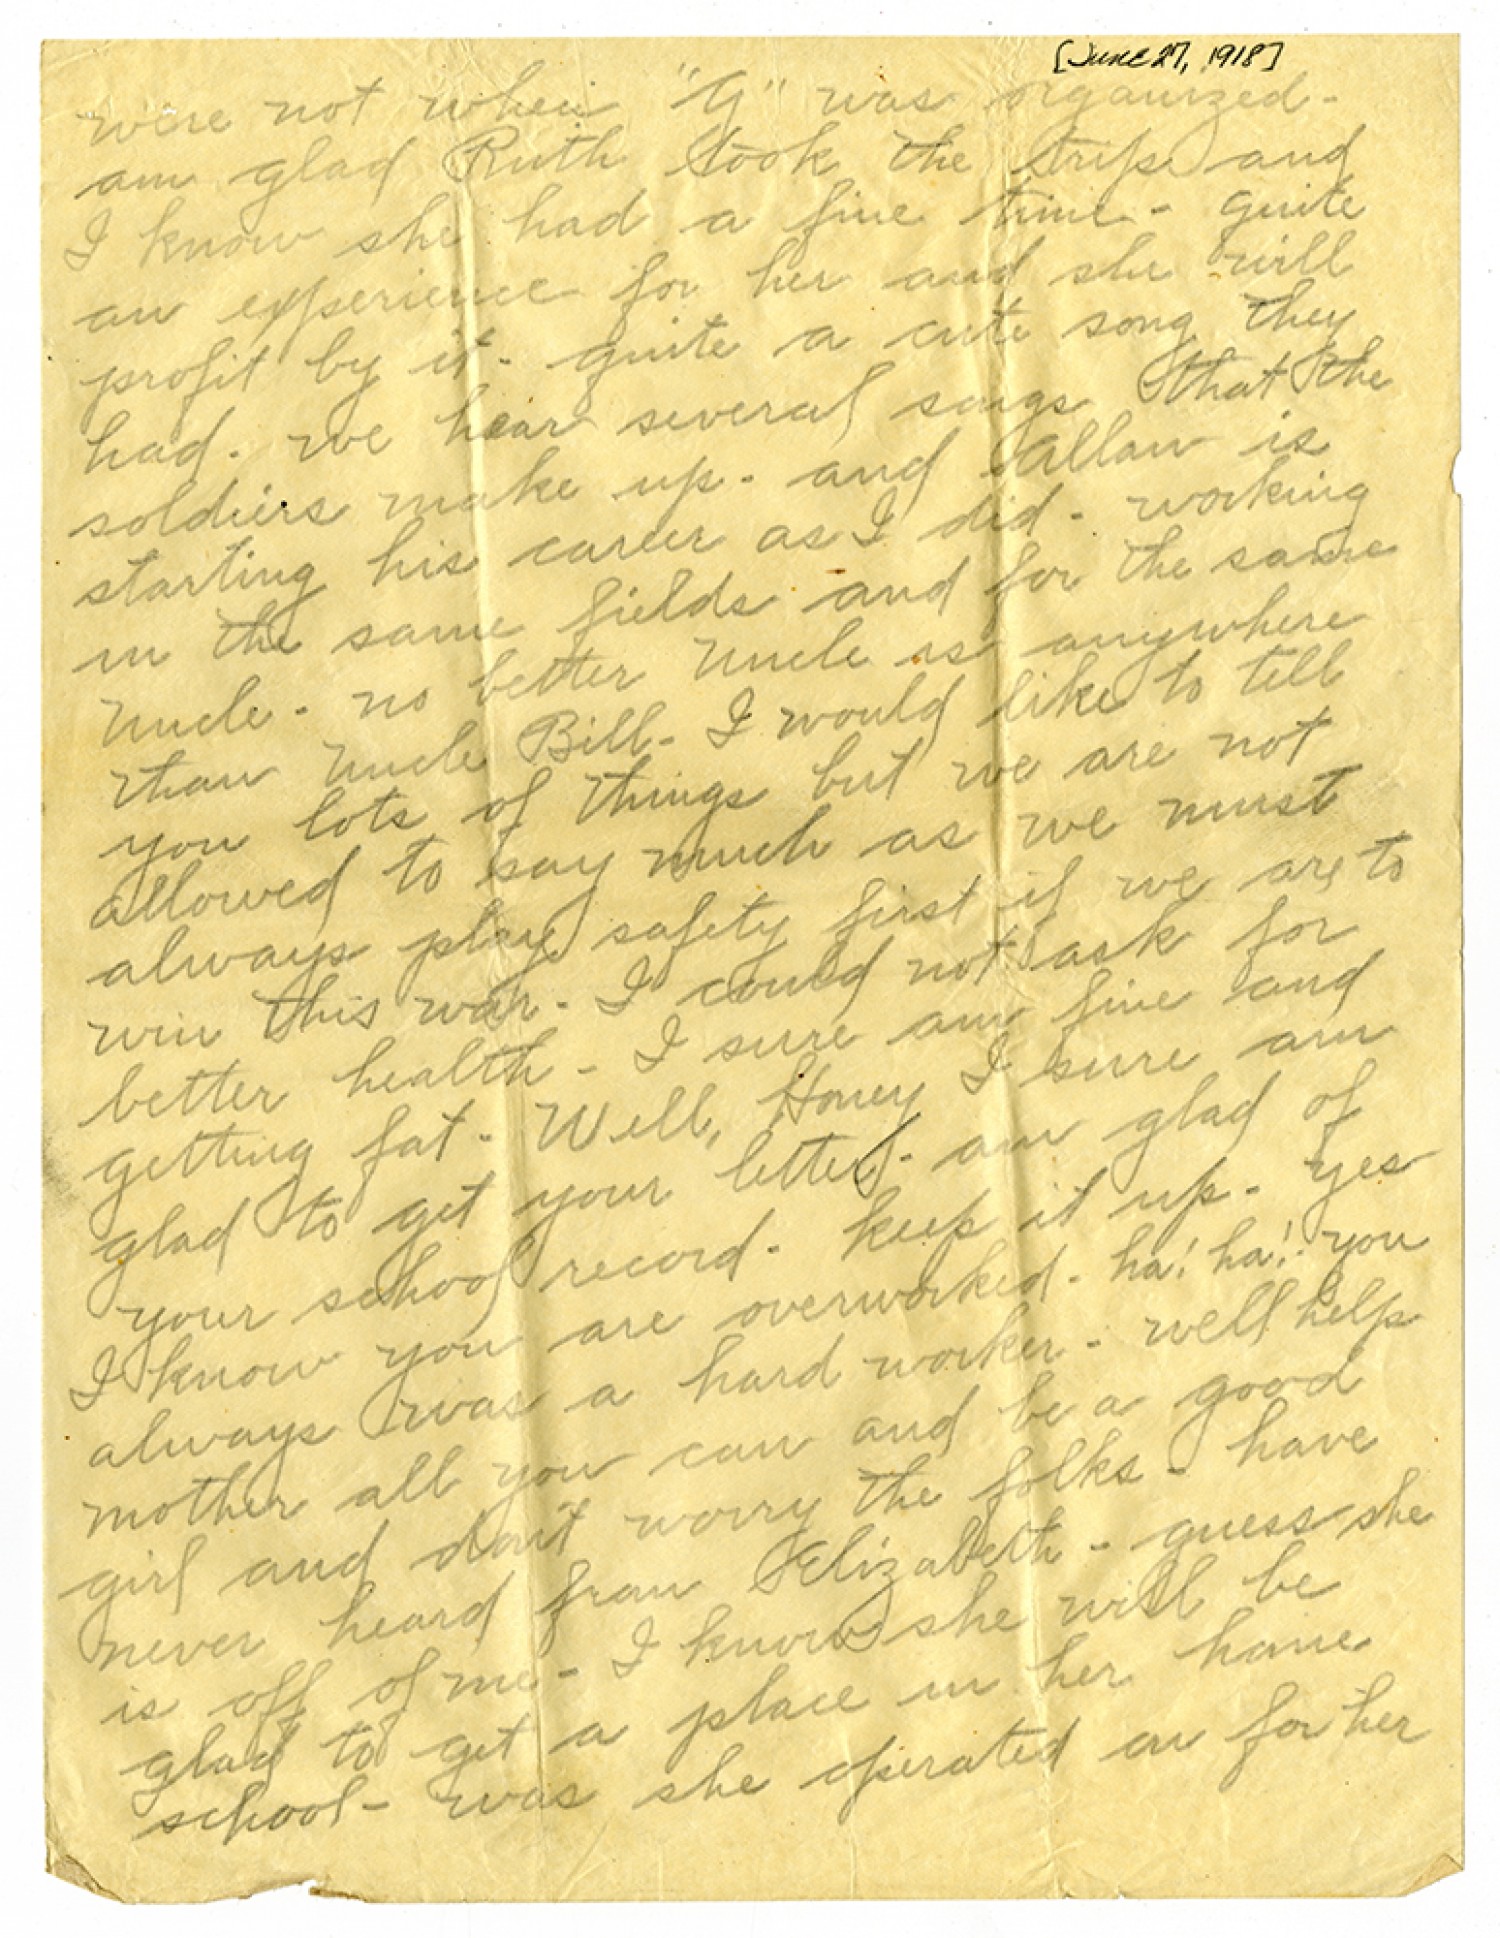 [June 27, 1918]
were not when "G" was organized-
am glad Ruth took the trip and
I know she had a fine time - quite
an experience for her and she will
profit by it - quite a cute song they
had. we hear several songs that the
soldiers make up - and Allan is
starting his career as I did - working
in the same fields and for the same
Uncle - no better Uncle is anywhere
than Uncle Bill - I would like to tell
you lots of things but we are not
allowed to say much as we must
always play safety first if we are to
win this war - I could not ask for
better health - I sure am fine and
getting fat - Well, Honey I sure am
glad to get your letter - am glad of
your school record - keep it up - yes
I know you are overworked - ha! ha! - you
always was a hard worker - well help
mother all you can and be a good
girl and don't worry the folks - have
never heard from Elizabeth - guess she
is off of me - I know she will be
glad to get a place in her home
school - was she operated on for her